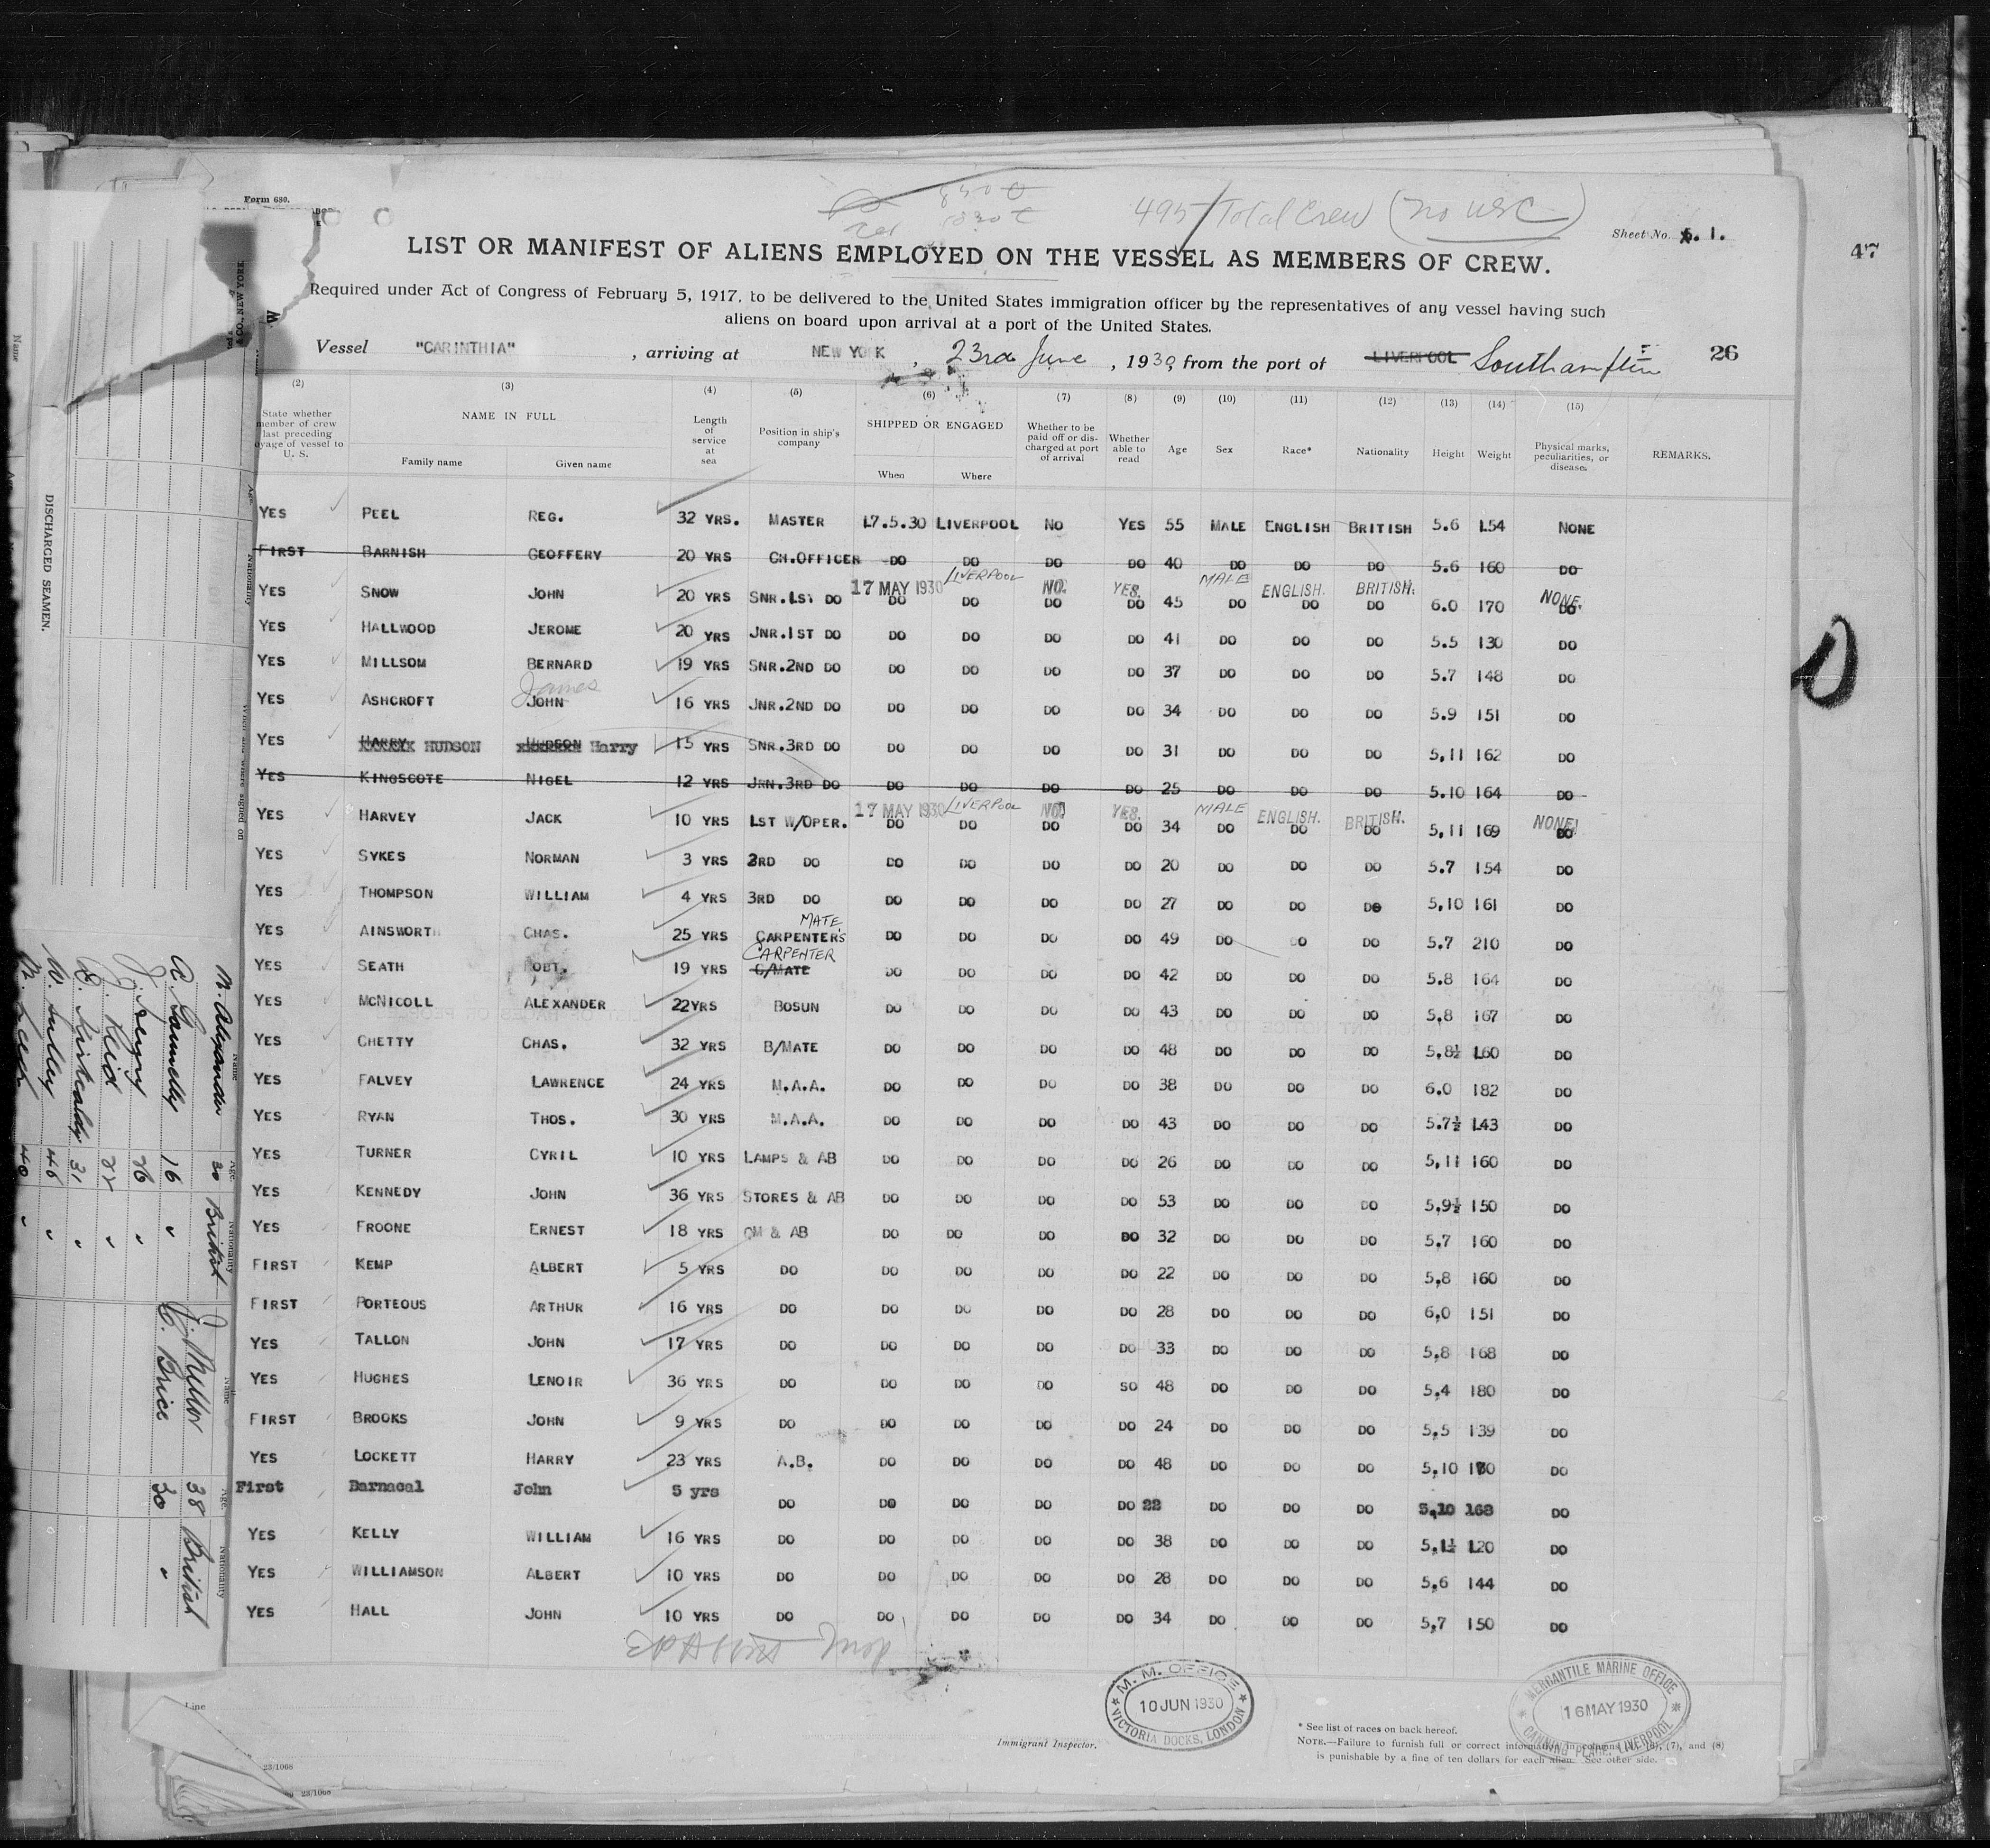 Form 680.
495 Total Crew (no USC)
Sheet No. 1.
47
LIST OR MANIFEST OF ALIENS EMPLOYED ON THE VESSEL AS MEMBERS OF CREW.
Required under Act of Congress of February 5, 1917, to be delivered to the United States immigration officer by the representatives of any vessel having such
aliens on board upon arrival at a port of the United States.
Vessel "CARINTHIA", arriving at NEW YORK, 23rd June, 1930, from the port of LIVERPOOL Southampton 26
(2) (3) (4) (5) (6) (7) (8) (9) (10) (11) (12) (13) (14) (15)
State whether member of crew last preceding oyage of vessel to U. S. NAME IN FULL Family name Given name Length of service at sea Position in ship's company SHIPPED OR ENGAGED When Where Whether to be paid off or discharged at port of arrival Whether able to read Age Sex Race* Nationality Height Weight Physical marks, peculiarities, or disease. REMARKS.
YES PEEL REG. 32 YRS. MASTER 17.5.30 LIVERPOOL NO YES 55 MALE ENGLISH BRITISH 5.6 154 NONE
FIRST BARNISH GEOFFERY 20 YRS CH.OFFICER DO DO DO DO 40 DO DO DO 5.6 160 DO
17 MAY 1930 LIVERPOOL NO. YES. MALE ENGLISH. BRITISH. NONE.
YES SNOW JOHN 20 YRS SNR.1ST DO DO DO DO DO 45 DO DO DO 6.0 170 DO
YES HALLWOOD JEROME 20 YRS JNR.1ST DO DO DO DO DO 41 DO DO DO 5.5 130 DO
YES MILLSOM BERNARD 19 YRS SNR.2ND DO DO DO DO DO 37 DO DO DO 5.7 148 DO
James
YES ASHCROFT JOHN 16 YRS JNR.2ND DO DO DO DO DO 34 DO DO DO 5.9 151 DO
YES HARRY HUDSON HUDSON Harry 15 YRS SNR.3RD DO DO DO DO DO 31 DO DO DO 5,11 162 DO
YES KINGSCOTE NIGEL 12 YRS JRN.3RD DO DO DO DO DO 25 DO DO DO 5.10 164 DO
17 MAY 1930 LIVERPOOL NO. YES. MALE ENGLISH. BRITISH. NONE
YES HARVEY JACK 10 YRS 1ST W/OPER. DO DO DO DO 34 DO DO DO 5,11 169 DO
YES SYKES NORMAN 3 YRS 2RD DO DO DO DO DO 20 DO DO DO 5.7 154 DO
YES THOMPSON WILLIAM 4 YRS 3RD DO DO DO DO DO 27 DO DO DO 5,10 161 DO
MATE
YES AINSWORTH CHAS. 25 YRS CARPENTER'S DO DO DO DO 49 DO DO DO 5.7 210 DO
CARPENTER
YES SEATH ROBT. 19 YRS C/MATE DO DO DO DO 42 DO DO DO 5.8 164 DO
YES MCNICOLL ALEXANDER 22YRS BOSUN DO DO DO DO 43 DO DO DO 5.8 167 DO
YES CHETTY CHAS. 32 YRS B/MATE DO DO DO DO 48 DO DO DO 5.8½ 160 DO
YES FALVEY LAWRENCE 24 YRS M.A.A. DO DO DO DO 38 DO DO DO 6.0 182 DO
YES RYAN THOS. 30 YRS M.A.A. DO DO DO DO 43 DO DO DO 5.7½ 143 DO
YES TURNER CYRIL 10 YRS LAMPS & AB DO DO DO DO 26 DO DO DO 5,11 160 DO
YES KENNEDY JOHN 36 YRS STORES & AB DO DO DO DO 53 DO DO DO 5.9½ 150 DO
YES FROONE ERNEST 18 YRS QM & AB DO DO DO DO 32 DO DO DO 5.7 160 DO
FIRST KEMP ALBERT 5 YRS DO DO DO DO DO 22 DO DO DO 5,8 160 DO
FIRST PORTEOUS ARTHUR 16 YRS DO DO DO DO DO 28 DO DO DO 6,0 151 DO
YES TALLON JOHN 17 YRS DO DO DO DO DO 33 DO DO DO 5.8 168 DO
YES HUGHES LENOIR 36 YRS DO DO DO DO SO 48 DO DO DO 5,4 180 DO
FIRST BROOKS JOHN 9 YRS DO DO DO DO DO 24 DO DO DO 5,5 139 DO
YES LOCKETT HARRY 23 YRS A.B. DO DO DO DO 48 DO DO DO 5,10 DO
First Barnacal John 5 yrs DO DO DO DO DO 22 DO DO DO 5,10 168 DO
YES KELLY WILLIAM 16 YRS DO DO DO DO DO 38 DO DO DO 5.1½ 120 DO
YES WILLIAMSON ALBERT 10 YRS DO DO DO DO DO 28 DO DO DO 5,6 144 DO
YES HALL JOHN 10 YRS DO DO DO DO DO 34 DO DO DO 5,7 150 DO
M. M. OFFICE
10 JUN 1930
VICTORIA DOCKS, LONDON
MERCANTILE MARINE OFFICE
16 MAY 1930
CANNING PLACE, LIVERPOOL
Immigrant Inspector.
* See list of races on back hereof.
NOTE.—Failure to furnish full or correct information in columns (4), (5), (7), and (8)
is punishable by a fine of ten dollars for each alien. See other side.
Line
23/1068
23/1068
& CO., NEW YORK
DISCHARGED SEAMEN.
Name Age Nationality
M. Alexander 20 British
A. Gannelly 16 "
J. 26 "
J. Reid 22 "
31 "
W. Sulley 46 "
M. Leech 40 "
Name Age Nationality
J. Mellor 38 British
C. Brice 30 "
When and where signed on